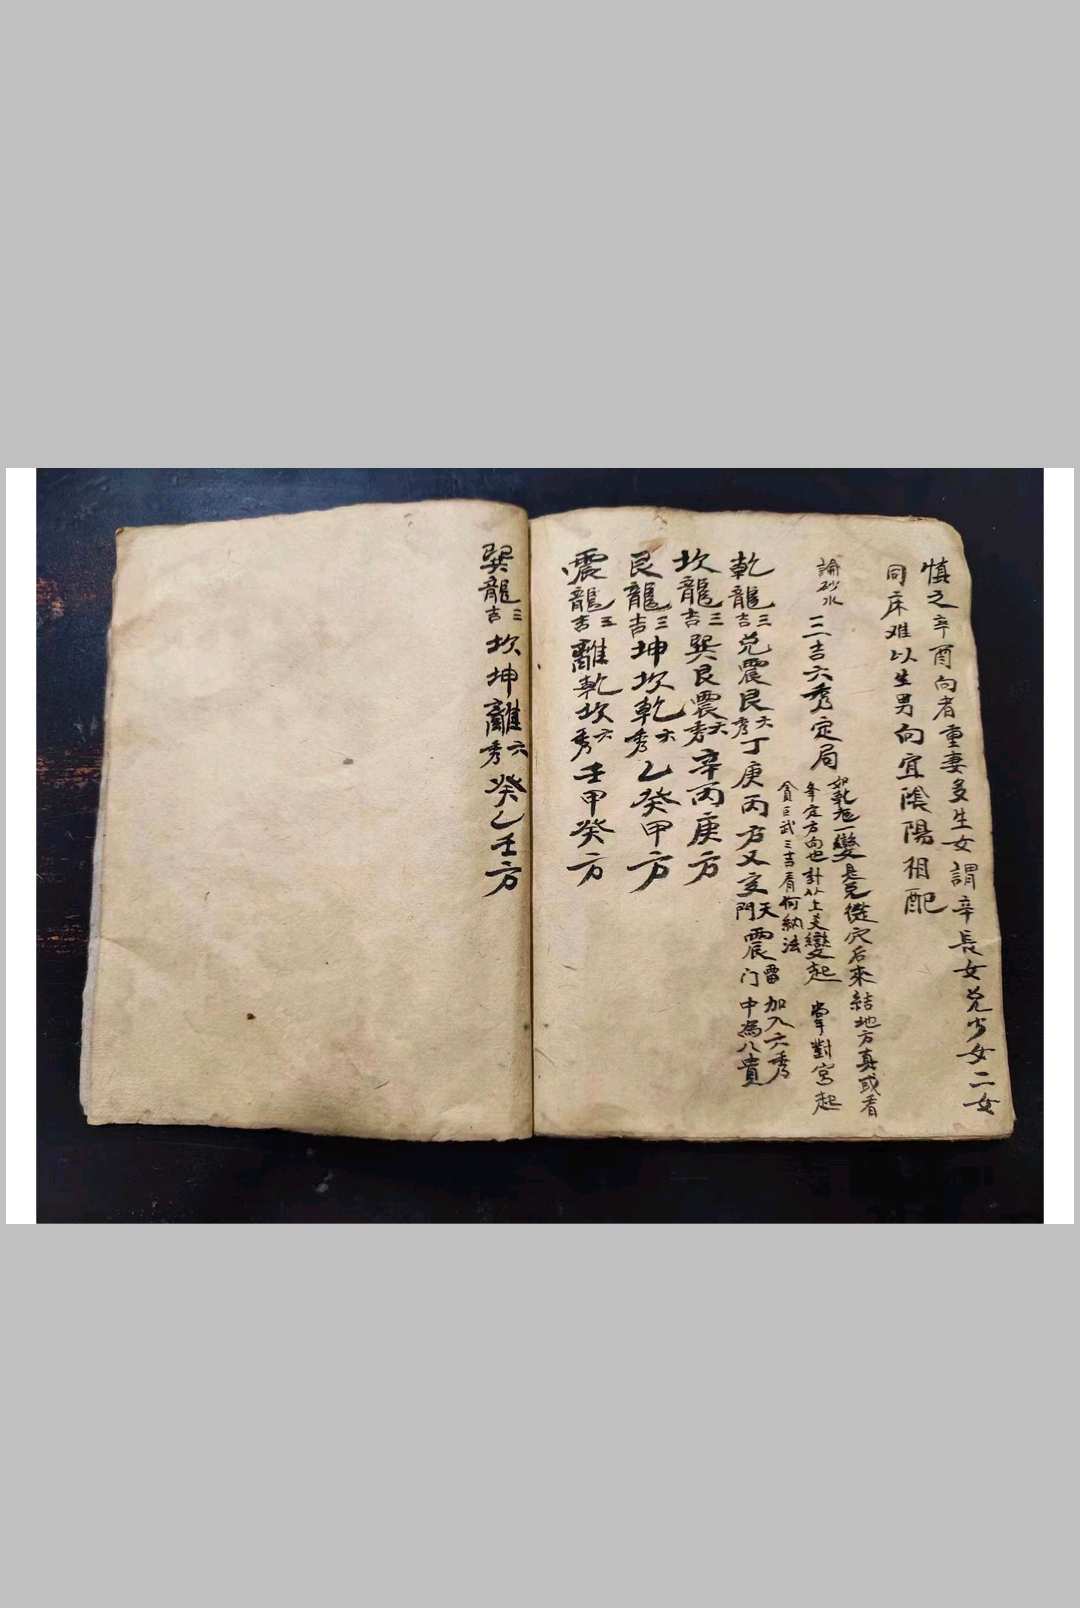 慎之辛酉向者重妻多生女謂辛長女兌少女二女
同床难以生男向宜陰陽相配
論砂水
三吉六秀定局
如乾龙一變是兌從穴后來結地方真或看
年定方向也計以上爻變起掌對宮起
貪巨武三吉看何納法
乾龍三吉兌震艮六秀丁庚丙方又交天門震雷门加入六秀中為八貴
坎龍三吉巽艮震六秀辛丙庚方
艮龍三吉坤坎乾六秀乙癸甲方
震龍五吉離乾坎六秀壬甲癸方
巽龍三吉坎坤離六秀癸乙壬方